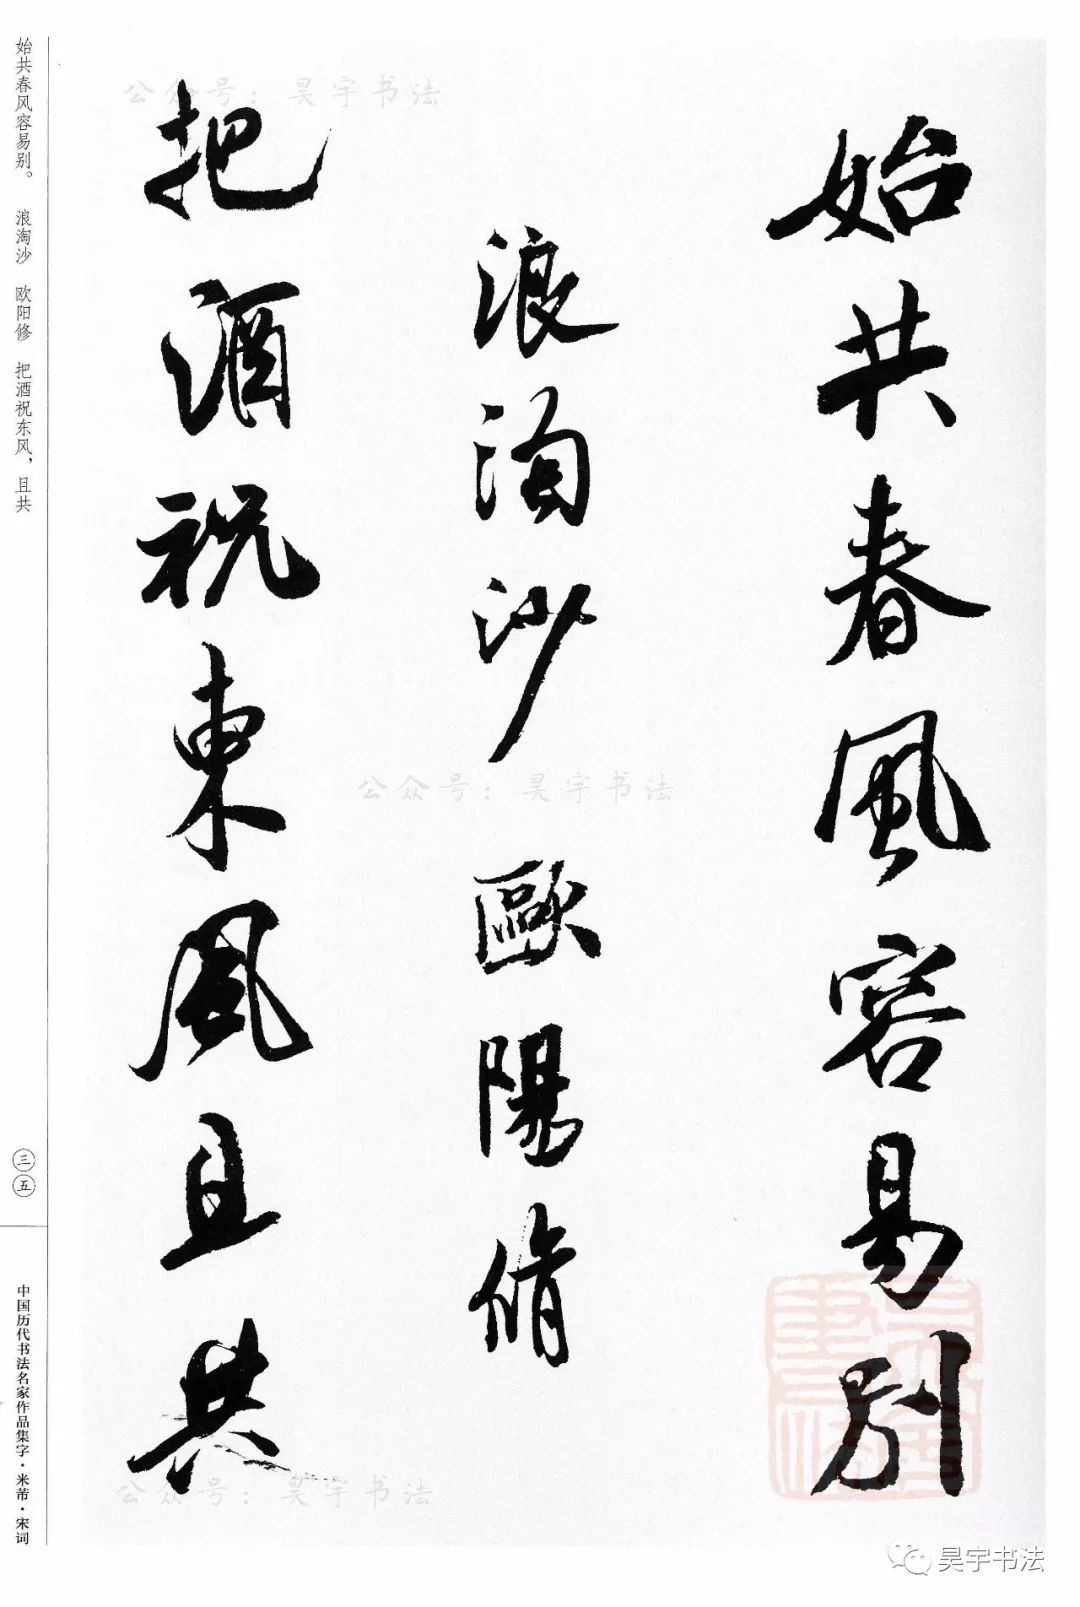 始共春風容易别
浪淘沙 歐陽脩
把酒祝東風且共
始共春风容易别。 浪淘沙 欧阳修 把酒祝东风，且共
三五
中国历代书法名家作品集字·米芾·宋词
公众号：昊宇书法
公众号：昊宇书法
公众号：昊宇书法
昊宇书法